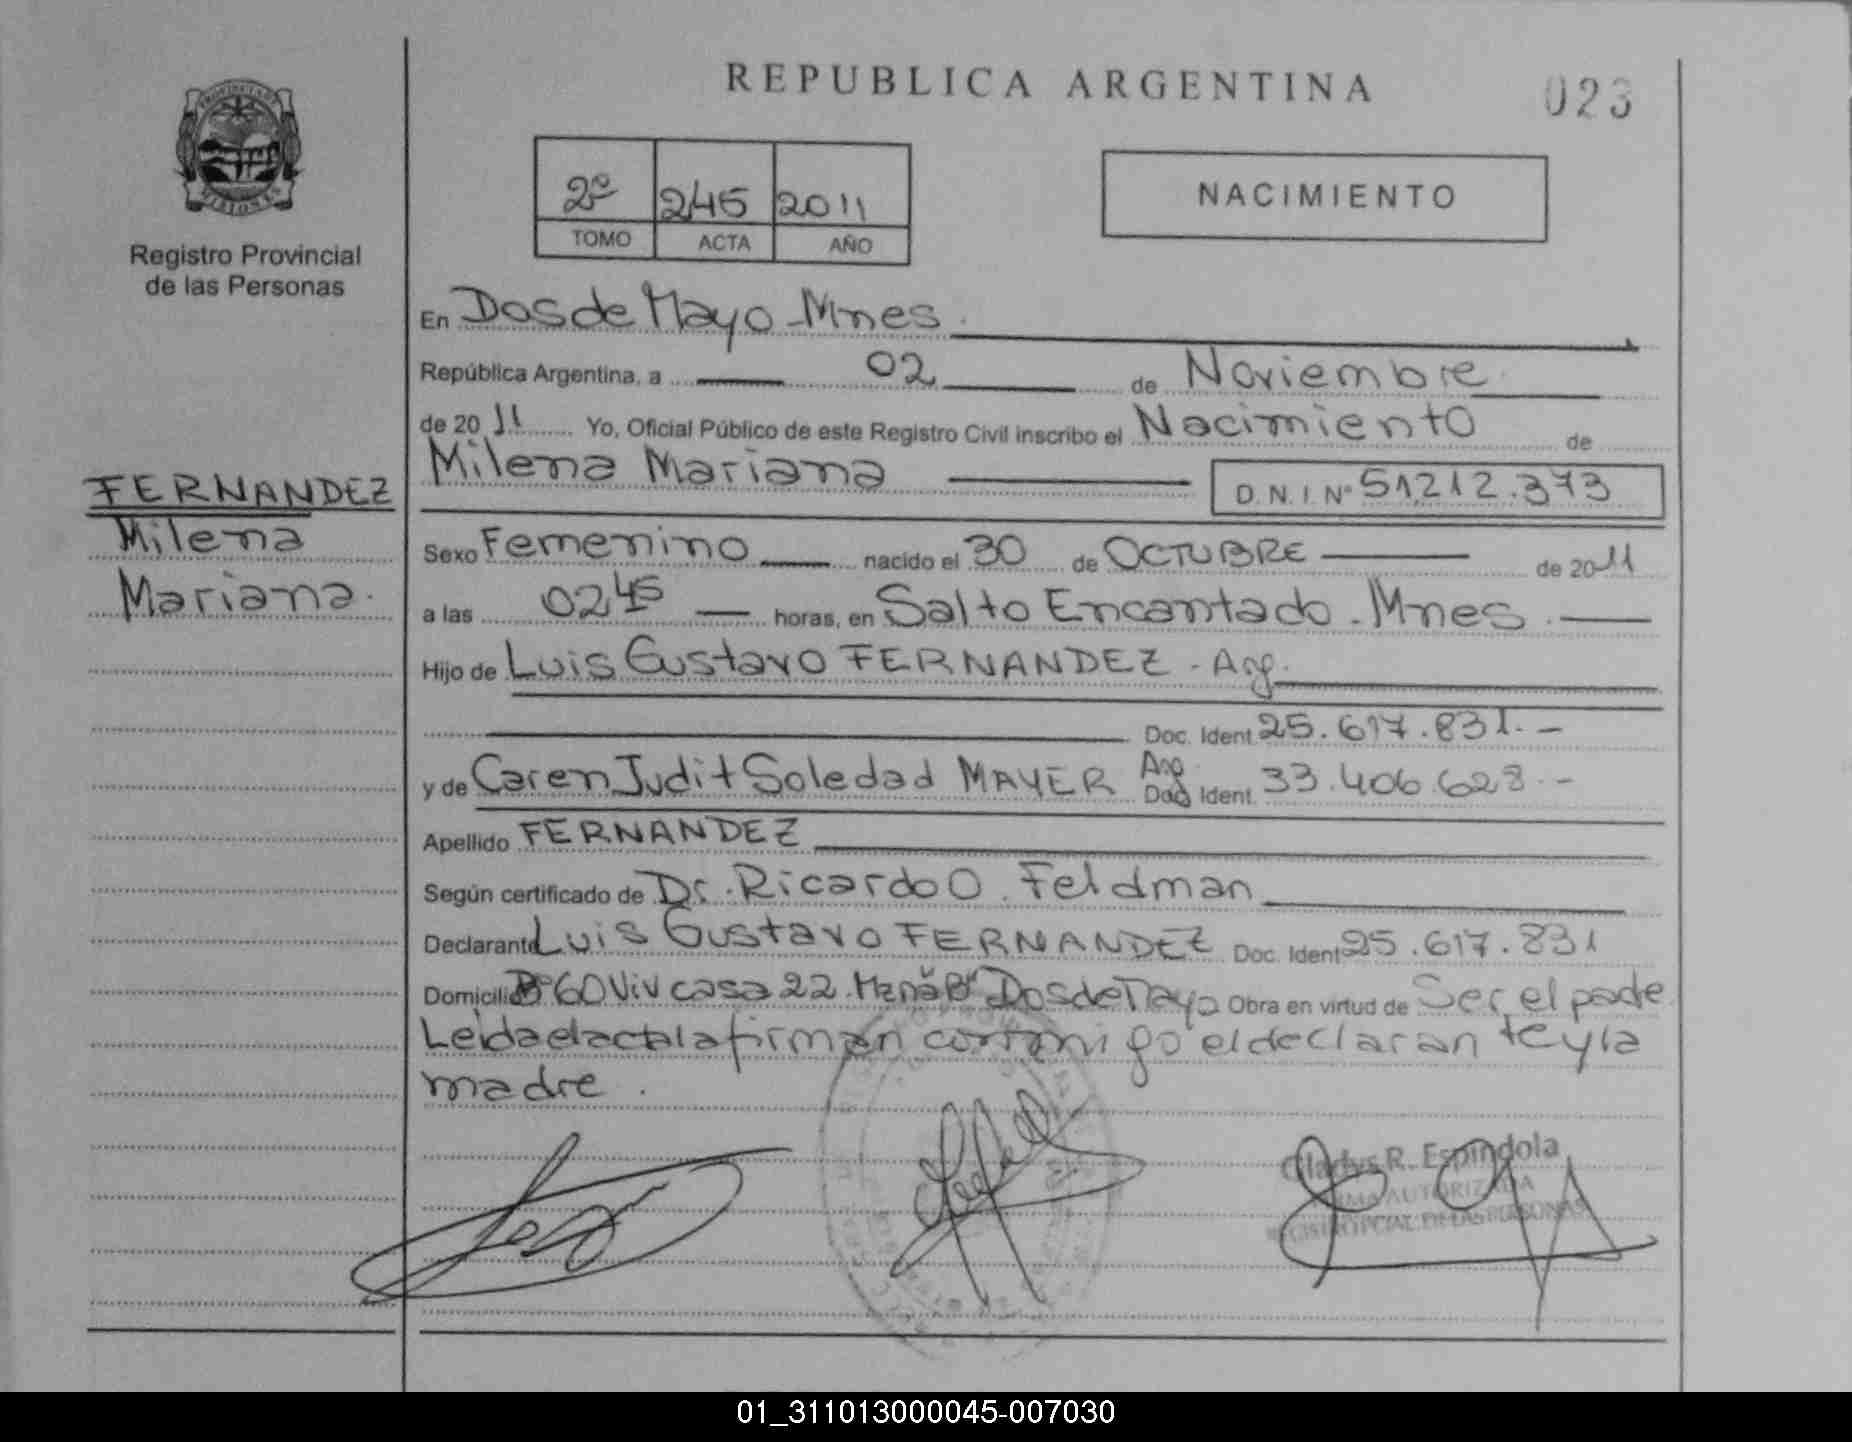 REPUBLICA ARGENTINA
023
PROVINCIA DE
MISIONES
Registro Provincial
de las Personas
2º 245 2011
TOMO ACTA AÑO
NACIMIENTO
En Dos de Mayo - Mnes.
República Argentina, a 02 de Noviembre
de 2011 Yo, Oficial Público de este Registro Civil inscribo el Nacimiento de
Milena Mariana D.N.I.Nº 51.212.373
FERNANDEZ
Milena
Mariana.
Sexo Femenino nacido el 30 de OCTUBRE de 2011
a las 02 45 horas, en Salto Encantado - Mnes.
Hijo de Luis Gustavo FERNANDEZ - Arg.
Doc. Ident. 25.617.831.-
y de Caren Judit Soledad MAYER Arg. Doc. Ident. 33.406.628.-
Apellido FERNANDEZ
Según certificado de Dr. Ricardo O. Feldman
Declarante Luis Gustavo FERNANDEZ Doc. Ident. 25.617.831
Domicilio Bº 60 Viv casa 22 Mzna "B" Dos de Mayo Obra en virtud de Ser el padre
Leida el acta la firman conmigo el declarante y la
madre.
Gladys R. Espindola
FIRMA AUTORIZADA
REGISTRO PCIAL. DE LAS PERSONAS
01_311013000045-007030